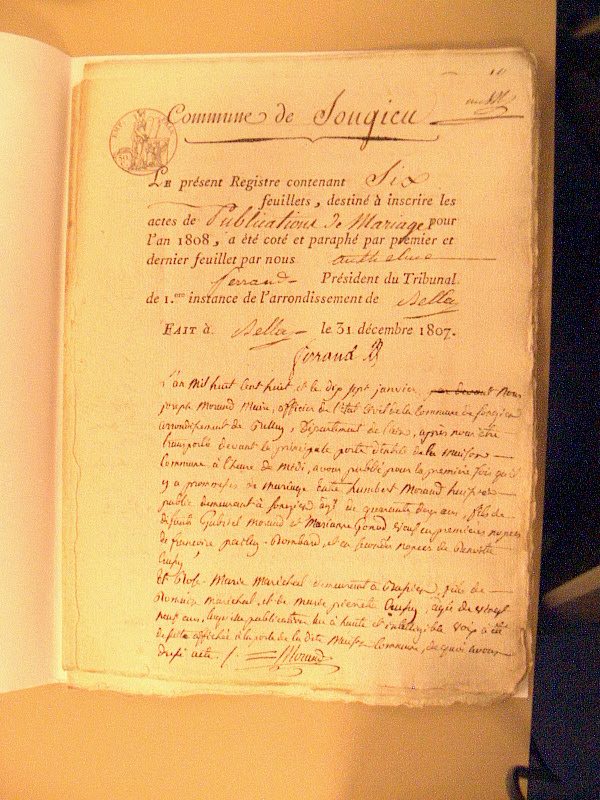 Commune de Songieu
LE présent Registre contenant Six
feuillets, destiné à inscrire les
actes de Publications de Mariage pour
l'an 1808, a été coté et paraphé par premier et
dernier feuillet par nous anthelme
Ferrand Président du Tribunal
de 1.ere instance de l'arrondissement de Belley
FAIT à Belley le 31 décembre 1807.
Ferrand
L'an mil huit cent huit et le dix sept janvier, par devant Nous
joseph Morand Maire, officier de l'état civil de la Commune de songieu
arrondissement de Belley, Département de l'ain, après nous être
transporté devant la principale porte d'entrée de la maison
Commune, à l'heure de Midi, avons publié pour la première fois qu'il
y a promesses de mariage entre humbert Morand huissier
public demeurant à songieu agé de quarante deux ans, fils de
défunts Gabriel Morand et Marianne veuf en premières noces
de françoise et en secondes noces de
Et Marie Maréchal demeurant à fille de
Romain Maréchal, et de Marie pierrette agée de vingt
neuf ans, laquelle publication lue à haute et intelligible voix a été
de suite affichée à la porte de la dite Maison Commune, de quoi avons
acte. Morand